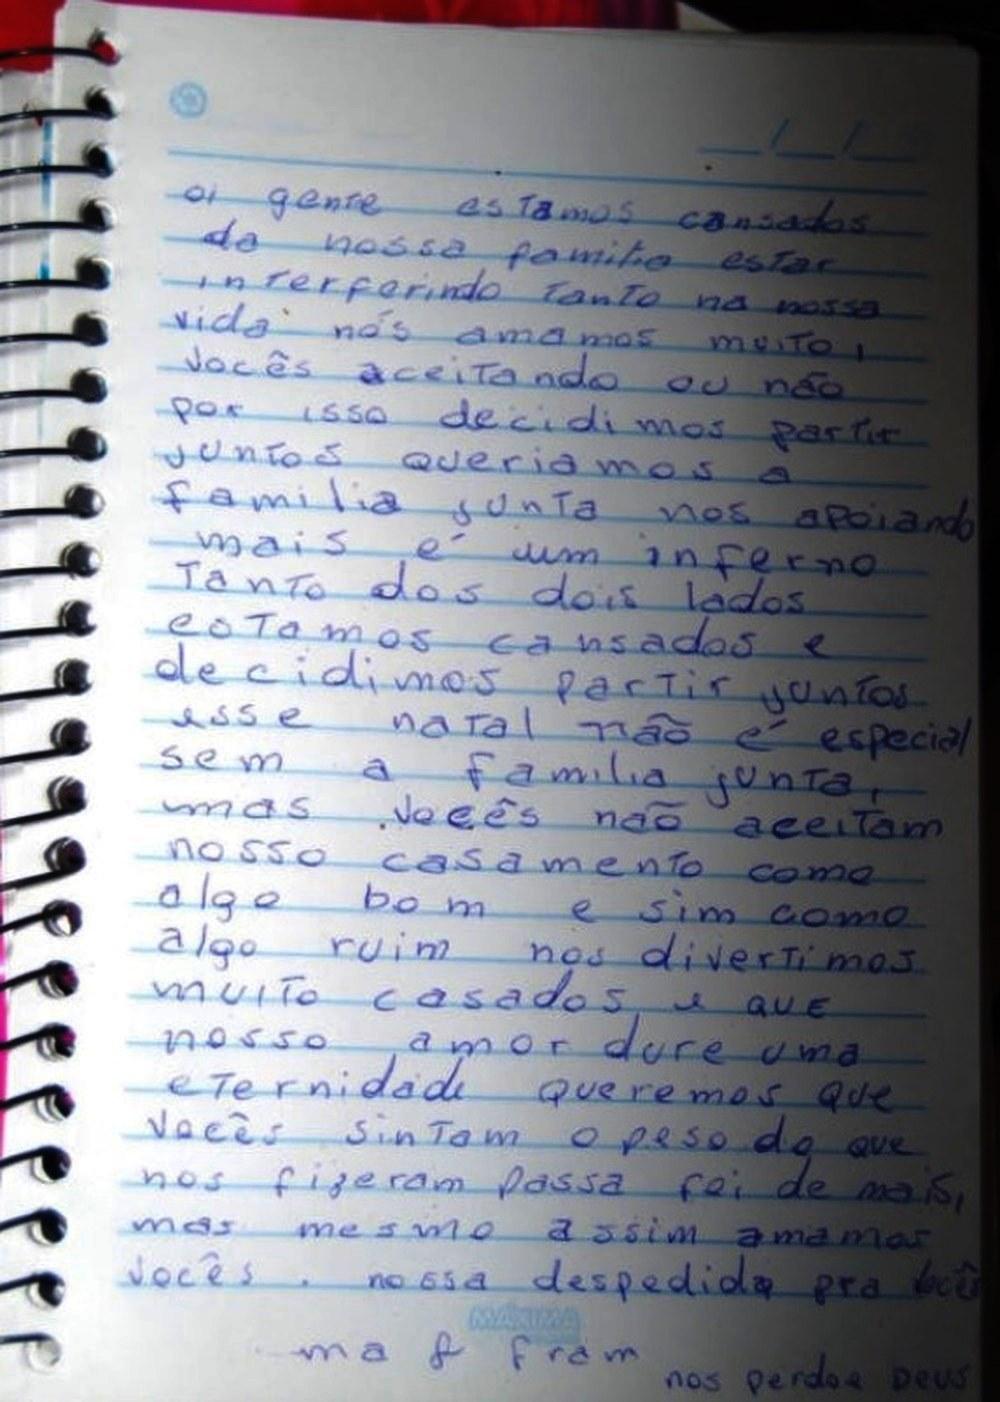 oi gente estamos cansados
da nossa familia estar
interferindo tanto na nossa
vida nós amamos muito,
vocês aceitando ou não
por isso decidimos partir
juntos queriamos a
familia junta nos apoiando
mais é um inferno
Tanto dos dois lados
estamos cansados e
decidimos partir juntos
esse natal não é especial
sem a familia junta,
mas vocês não aceitam
nosso casamento como
algo bom e sim como
algo ruim nos divertimos
muito casados, e que
nosso amor dure uma
eternidade queremos que
vocês sintam o peso do que
nos fizeram passa foi de mais,
mas mesmo assim amamos
vocês. nossa despedida pra vocês
MÁXIMA
ma & fram
nos perdoe Deus